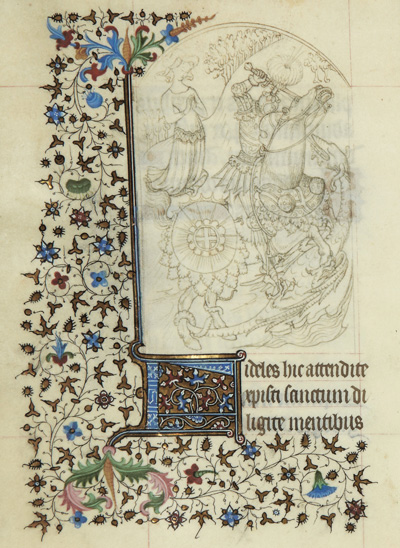 ideles hic attendite
xpisti sanctum di
ligite mentibus